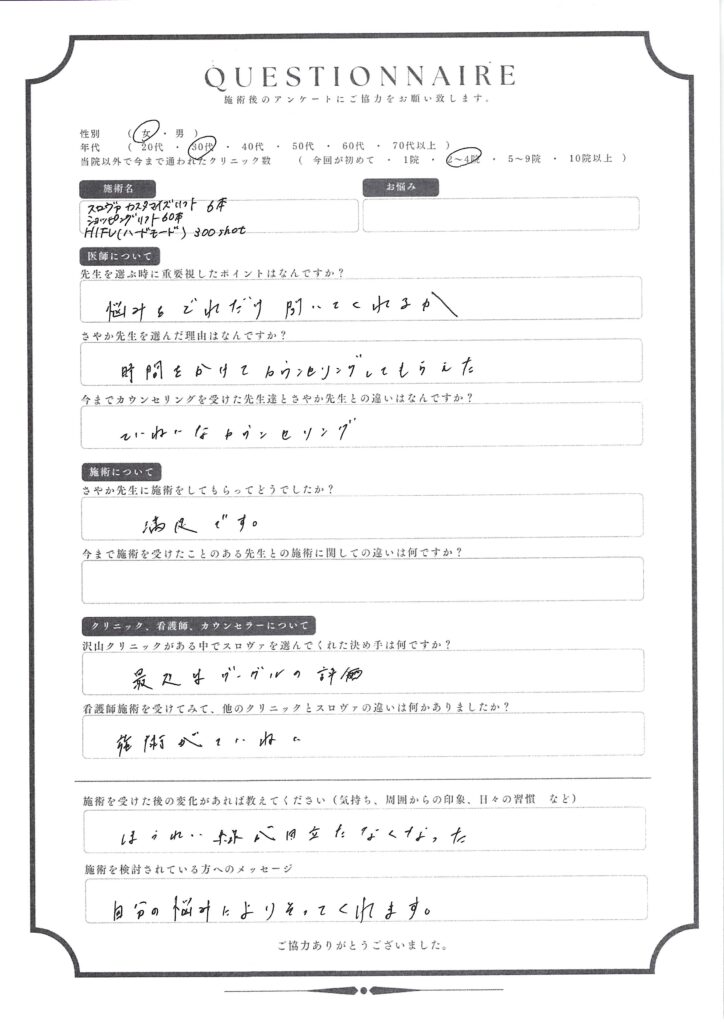 QUESTIONNAIRE
施術後のアンケートにご協力をお願い致します。
性別 ( 女 ・ 男 )
年代 ( 20代 ・ 30代 ・ 40代 ・ 50代 ・ 60代 ・ 70代以上 )
当院以外で今まで通われたクリニック数 ( 今回が初めて ・ 1院 ・ 2〜4院 ・ 5〜9院 ・ 10院以上 )
施術名
お悩み
スロヴァカスタマイズリフト 6本
ショッピングリフト60本
HIFU(ハードモード) 300shot
医師について
先生を選ぶ時に重要視したポイントはなんですか?
悩みをどれだけ聞いてくれるか
さやか先生を選んだ理由はなんですか?
時間をかけてカウンセリングしてもらえた
今までカウンセリングを受けた先生達とさやか先生との違いはなんですか?
ていねいなカウンセリング
施術について
さやか先生に施術をしてもらってどうでしたか?
満足です。
今まで施術を受けたことのある先生との施術に関しての違いは何ですか?
クリニック、看護師、カウンセラーについて
沢山クリニックがある中でスロヴァを選んでくれた決め手は何ですか?
最初はグーグルの評価
看護師施術を受けてみて、他のクリニックとスロヴァの違いは何かありましたか?
施術がていねい
施術を受けた後の変化があれば教えてください(気持ち、周囲からの印象、日々の習慣 など)
ほうれい線が目立たなくなった
施術を検討されている方へのメッセージ
自分の悩みによりそってくれます。
ご協力ありがとうございました。